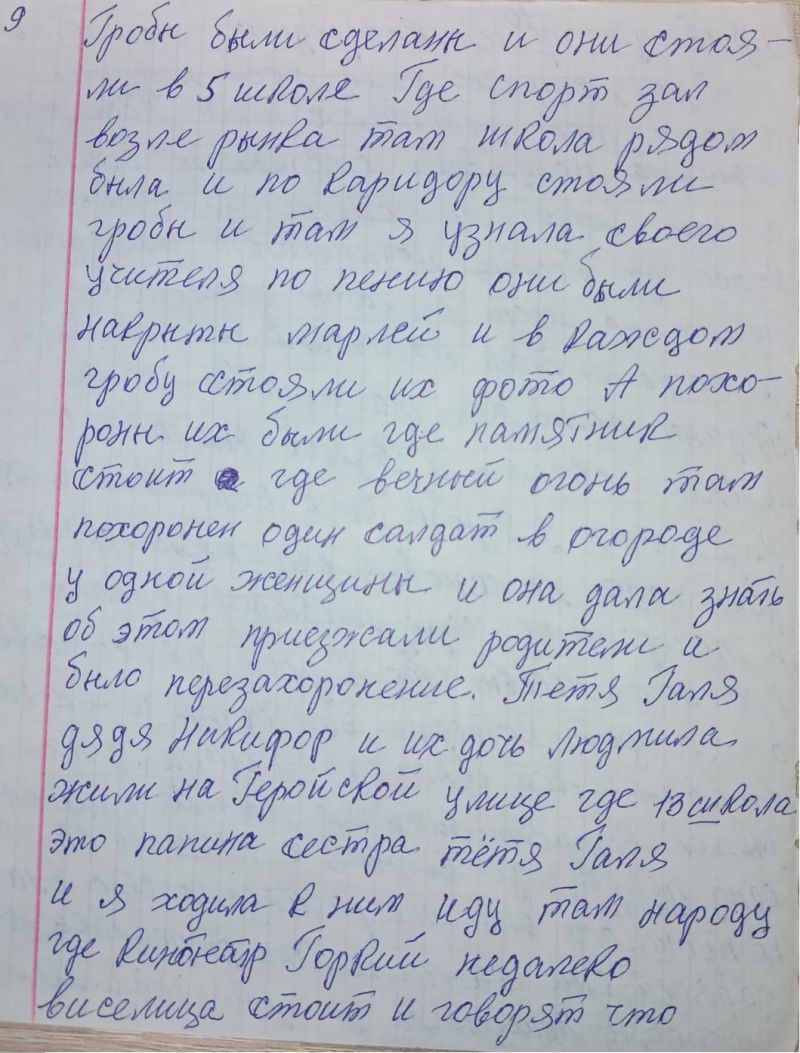 9
Гробы были сделаны и они стоя-
ли в 5 школе Где спорт зал
возле рынка там школа рядом
была и по каридору стояли
гробы и там я узнала своего
учителя по пению они были
накрыты марлей и в каждом
гробу стояли их фото А похо-
роны их были где памятник
стоит где вечный огонь там
похоронен один салдат в огороде
у одной женщины и она дала знать
об этом приезжали родители и
было перезахоронение. Тётя Галя
дядя Никифор и их дочь Людмила
жили на Геройской улице где 13 школа
это папина сестра тётя Галя
и я ходила к ним иду там народу
где кинотеатр Горкий недалеко
виселица стоит и говорят что